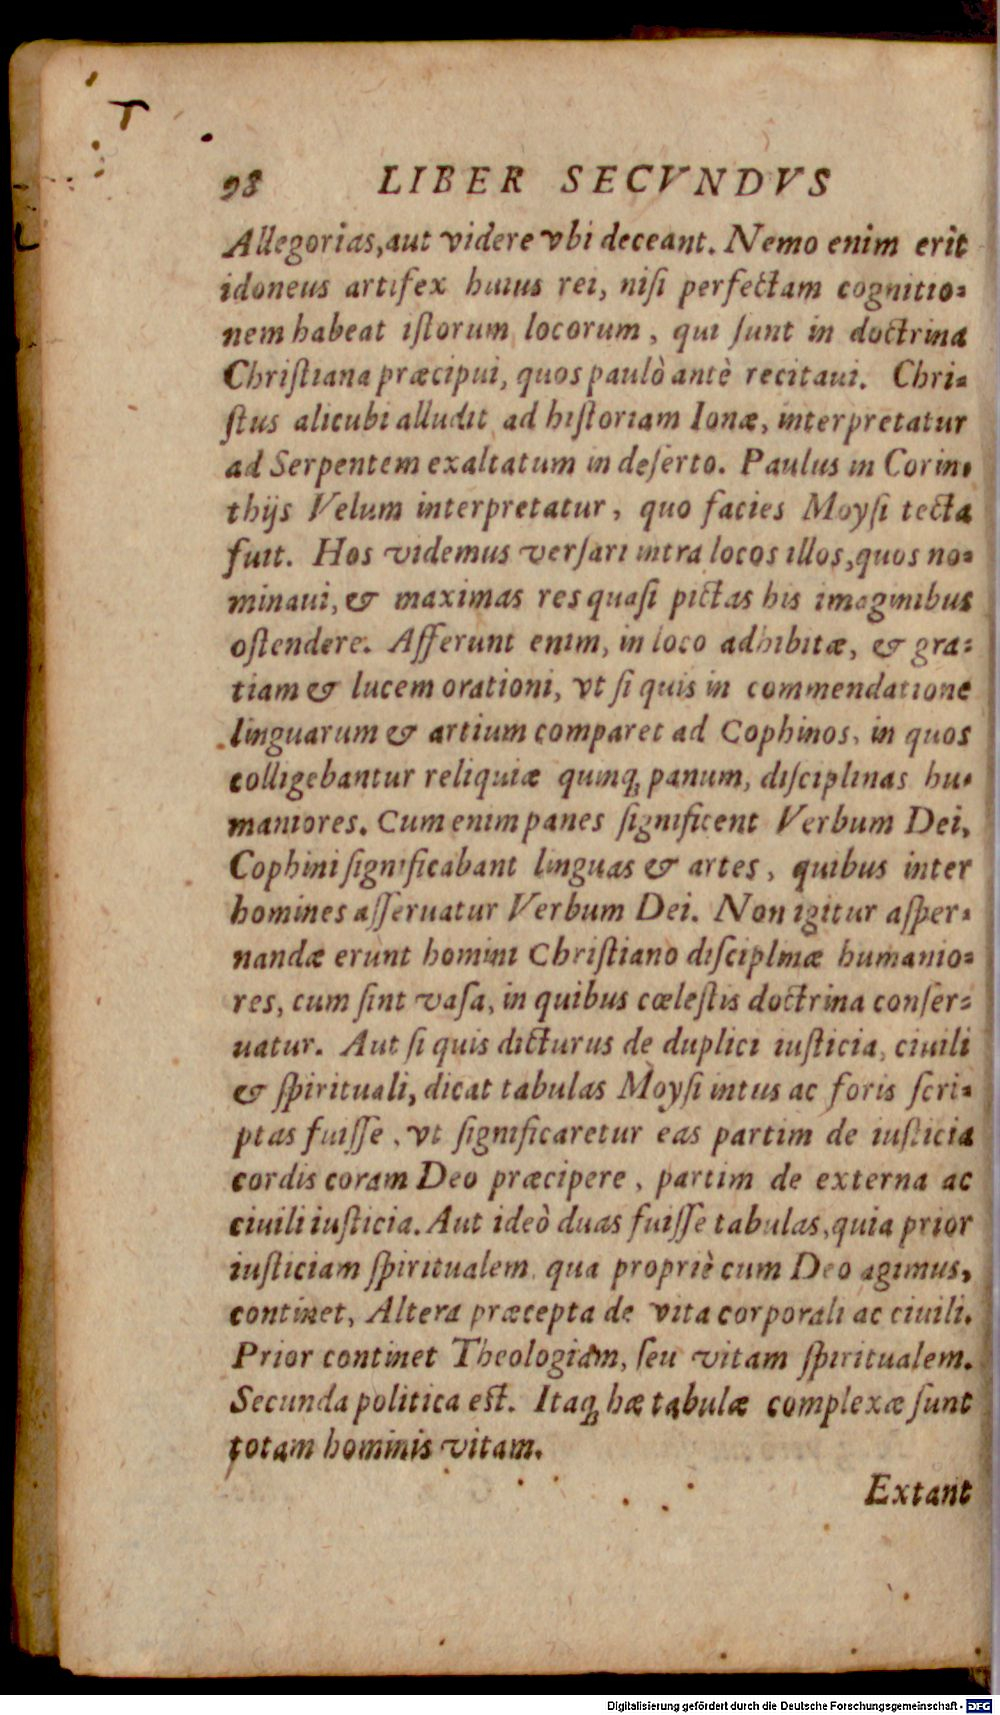 98 LIBER SECVNDVS
Allegorias, aut videre vbi deceant. Nemo enim erit
idoneus artifex huius rei, niſi perfectam cognitio-
nem habeat iſtorum locorum, qui ſunt in doctrina
Chriſtiana præcipui, quos paulò antè recitaui. Chri-
ſtus alicubi alludit ad hiſtoriam Ionæ, interpretatur
ad Serpentem exaltatum in deſerto. Paulus in Corin-
thijs Velum interpretatur, quo facies Moyſi tecta
fuit. Hos videmus verſari intra locos illos, quos no-
minaui, & maximas res quaſi pictas his imaginibus
oſtendere. Afferunt enim, in loco adhibitæ, & gra-
tiam & lucem orationi, vt ſi quis in commendatione
linguarum & artium comparet ad Cophinos, in quos
colligebantur reliquiæ quinqꝫ panum, diſciplinas hu-
maniores. Cum enim panes ſignificent Verbum Dei,
Cophini ſignificabant linguas & artes, quibus inter
homines aſſeruatur Verbum Dei. Non igitur aſper-
nandæ erunt homini Chriſtiano diſciplinæ humanio-
res, cum ſint vaſa, in quibus cœleſtis doctrina conſer-
uatur. Aut ſi quis dicturus de duplici iuſticia, ciuili
& ſpirituali, dicat tabulas Moyſi intus ac foris ſcri-
ptas fuiſſe, vt ſignificaretur eas partim de iuſticia
cordis coram Deo præcipere, partim de externa ac
ciuili iuſticia. Aut ideò duas fuiſſe tabulas, quia prior
iuſticiam ſpiritualem, qua propriè cum Deo agimus,
continet, Altera præcepta de vita corporali ac ciuili.
Prior continet Theologiam, ſeu vitam ſpiritualem.
Secunda politica eſt. Itaqꝫ hæ tabulæ complexæ ſunt
totam hominis vitam.
Extant
Digitalisierung gefördert durch die Deutsche Forschungsgemeinschaft - DFG